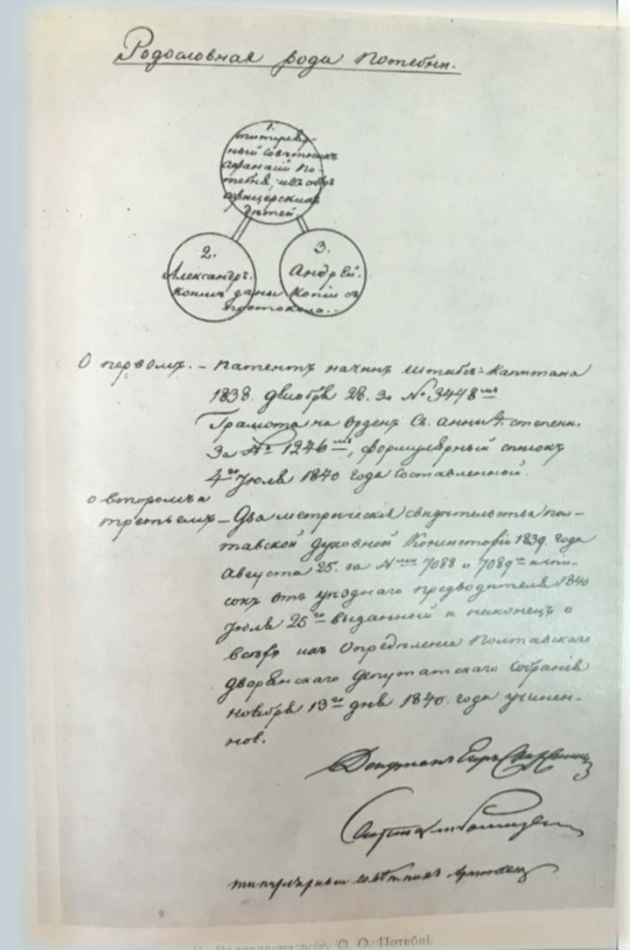 Родословная рода Потебни.
1.
титуляр-
ный Совѣтникъ
Афанасій По-
тебня, изъ обер
офицерскихъ
дѣтей
2.
Александръ.
копіи даны
3.
Андрей.
копіи съ
протокола..
О первомъ. – Патентъ на чинъ Штабсъ-Капитана
1838. декабря 28. за № 3448мъ
Грамота на Орденъ Св. Анны 4. степени.
За № 1246мъ, формулярный списокъ
4го Іюля 1840 года составленной.
о второмъ и
третьемъ – Два метрическія свидѣтельства Пол-
тавской Духовной Консисторіи 1839. года
Августа 25. за №ми 7088 и 7089
сокъ отъ уѣзднаго предводителя 1840
Іюля 25го выданной и наконецъ о
всѣхъ ихъ Опредѣленіе Полтавскаго
дворянскаго депутатскаго Собранія
ноября 13го дня 1840. года учинен-
ное.
титулярный совѣтникъ
О. О. Потебні.